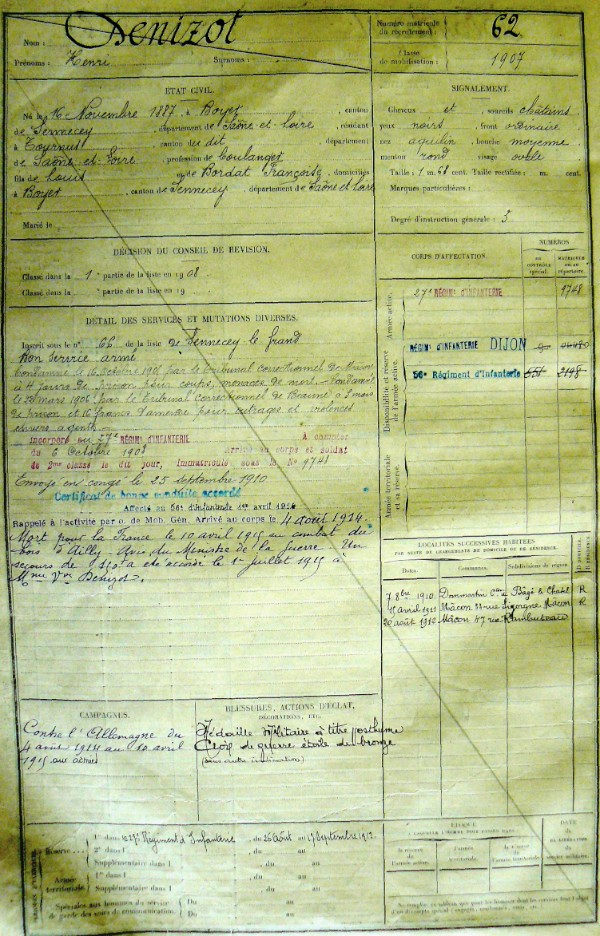 Nom : Denizot
Prénoms : Henri Surnoms :
Numéro matricule du recrutement : 62
Classe de mobilisation : 1907
ÉTAT CIVIL.
Né le 16 Novembre 1887, à Boyer, canton
de Sennecey, département de Saône-et-Loire, résidant
à Tournus, canton du dit, département
de Saône-et-Loire, profession de boulanger
fils de Louis et de Bordat Françoise, domiciliés
à Boyer, canton de Sennecey, département de Saône-et-Loire
Marié le
SIGNALEMENT.
Cheveux et sourcils châtains
yeux noirs, front ordinaire
nez aquilin, bouche moyenne
menton rond visage ovale
Taille : 1 m. 61 cent. Taille rectifiée : m. cent.
Marques particulières :
Degré d'instruction générale : 3
DÉCISION DU CONSEIL DE RÉVISION.
Classé dans la 1e partie de la liste en 1908
Classé dans la partie de la liste en 19
CORPS D'AFFECTATION.
NUMÉROS
AU CONTRÔLE spécial.
MATRICULE ou au répertoire.
Armée active.
27e RÉGIMt D'INFANTERIE 9748
Disponibilité et réserve de l'armée active.
RÉGIMt D'INFANTERIE DIJON
56e Régiment d'Infanterie 2198
Armée territoriale et sa réserve.
DÉTAIL DES SERVICES ET MUTATIONS DIVERSES.
Inscrit sous le n° 66 de la liste de Sennecey le Grand
Bon service armé
Condamné le 16 octobre par le tribunal correctionnel de Macon
à 4 jours de prison pour coups, menaces de mort. Condamné
le 23 mars 1906 par le tribunal correctionnel de
de prison et 16 francs d'amende pour outrages et violences
envers agents.
Incorporé au 27e RÉGIMt D'INFANTERIE À compter
du 6 Octobre 1908 Arrivé au corps et soldat
de 2me classe le dit jour, immatriculé sous le No 9748
Envoyé en congé le 25 septembre 1910
Certificat de bonne conduite accordé
Affecté au 56e d'Infanterie 1er avril 1914
Rappelé à l'activité par o. de Mob. Gén. Arrivé au corps le 4 août 1914.
Mort pour la France le 10 avril 1915 au combat du
bois d'Ailly. Avis du Ministre de la guerre. Un
secours de 150f a été accordé le 1er juillet 1915 à
Mme Vve Denizot.
LOCALITÉS SUCCESSIVES HABITÉES
PAR SUITE DE CHANGEMENTS DE DOMICILE OU DE RÉSIDENCE.
Dates. Communes. Subdivisions de région.
7 8bre 1910 Dommartin Bâgé le Chatel R
avril 1911 Mâcon rue Macon R
20 août 1912 Mâcon 47 rue Rambuteau
CAMPAGNES.
Contre l'Allemagne du
4 août 1914 au 10 avril
1915 aux armées
BLESSURES, ACTIONS D'ÉCLAT,
DÉCORATIONS, ETC.
Médaille militaire à titre posthume
Croix de guerre étoile de bronze
(sans autre indication)
Réserve
1re dans le 27e Régiment d'Infanterie du 26 Août au 17 Septembre 1912.
2e dans l , du au
Supplémentaire dans l , du au
Armée territoriale.
1re dans l , du au
Supplémentaire dans l , du au
Spéciales aux hommes du service
de garde des voies de communication. Du au
Du au